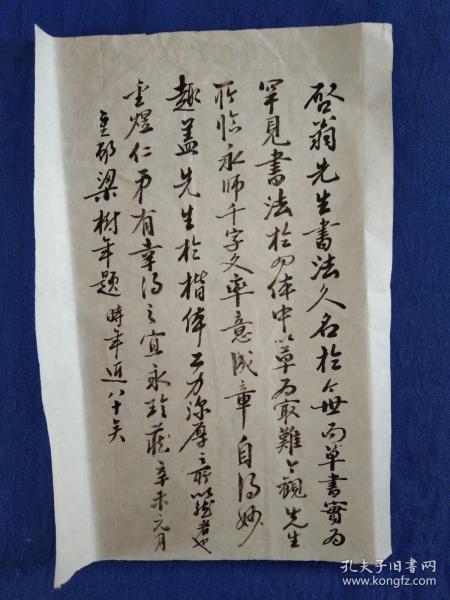 啓翁先生書法久名於今世而草書實为
罕見書法於四体中以草为最難今觀先生
所临永师千字文率意成章自得妙
趣盖先生於楷体工力深厚之所以然者也
金煜仁弟有幸得之宜永珍藏辛未元月
京邸梁树年题時年近八十矣
孔夫子旧书网
www.kongfz.com